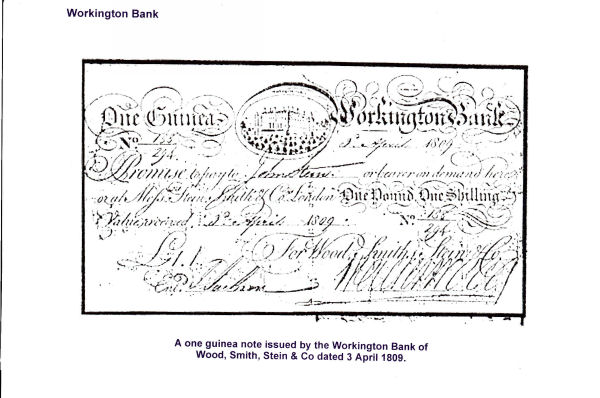 Workington Bank
One Guinea Workington Bank
No 155 3d April 1809
294
I Promise to pay to John Stein or bearer on demand here
or at Messrs Stein, Smith & Co. London One Pound, One Shilling
Value received 3d April 1809. No 155
294
£1.1. For Wood, Smith, Stein & Co.
Entd.
A one guinea note issued by the Workington Bank of
Wood, Smith, Stein & Co dated 3 April 1809.